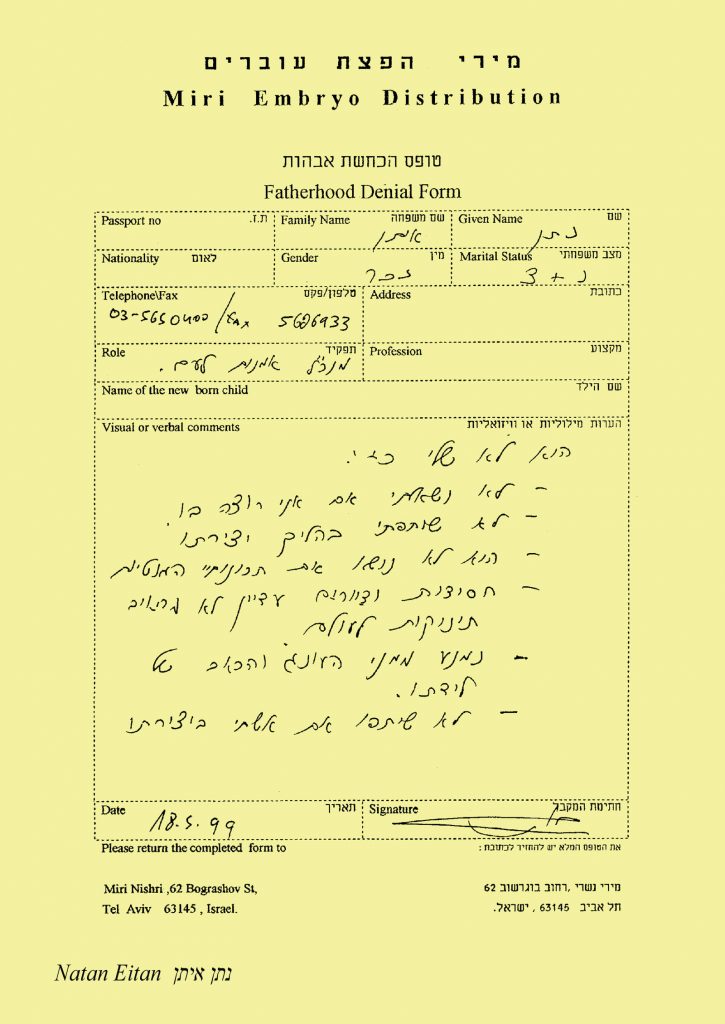 מירי הפצת עוברים
Miri Embryo Distribution
טופס הכחשת אבהות
Fatherhood Denial Form
Passport no ת.ז. Family Name שם משפחה Given Name שם
איתן נתן
Nationality לאום Gender מין Marital Status מצב משפחתי
זכר נ + 3
Telephone\Fax טלפון/פקס Address כתובת
03-5650400/FAX 5686933
Role תפקיד Profession מקצוע
מנכ"ל אמנות לעם.
Name of the new born child שם הילד
Visual or verbal comments הערות מילוליות או וויזואליות
הוא לא שלי כי:
- לא נשאלתי אם אני רוצה בו
- לא שותפתי בהליך יצירתו
- הוא לא נושא את תכונותיי הגנטיות
- חסידות וצוורים עדיין לא מביאים
תינוקות לעולם
- נמנע ממני העונג והכאב של
לידתו.
- לא שיתפו את אשתי ביצירתו
Date תאריך Signature חתימת המקבל
18.5.99
Please return the completed form to את הטופס המלא יש להחזיר לכתובת:
Miri Nishri ,62 Bograshov St, מירי נשרי ,רחוב בוגרשוב 62
Tel Aviv 63145 , Israel. תל אביב 63145 , ישראל.
Natan Eitan נתן איתן